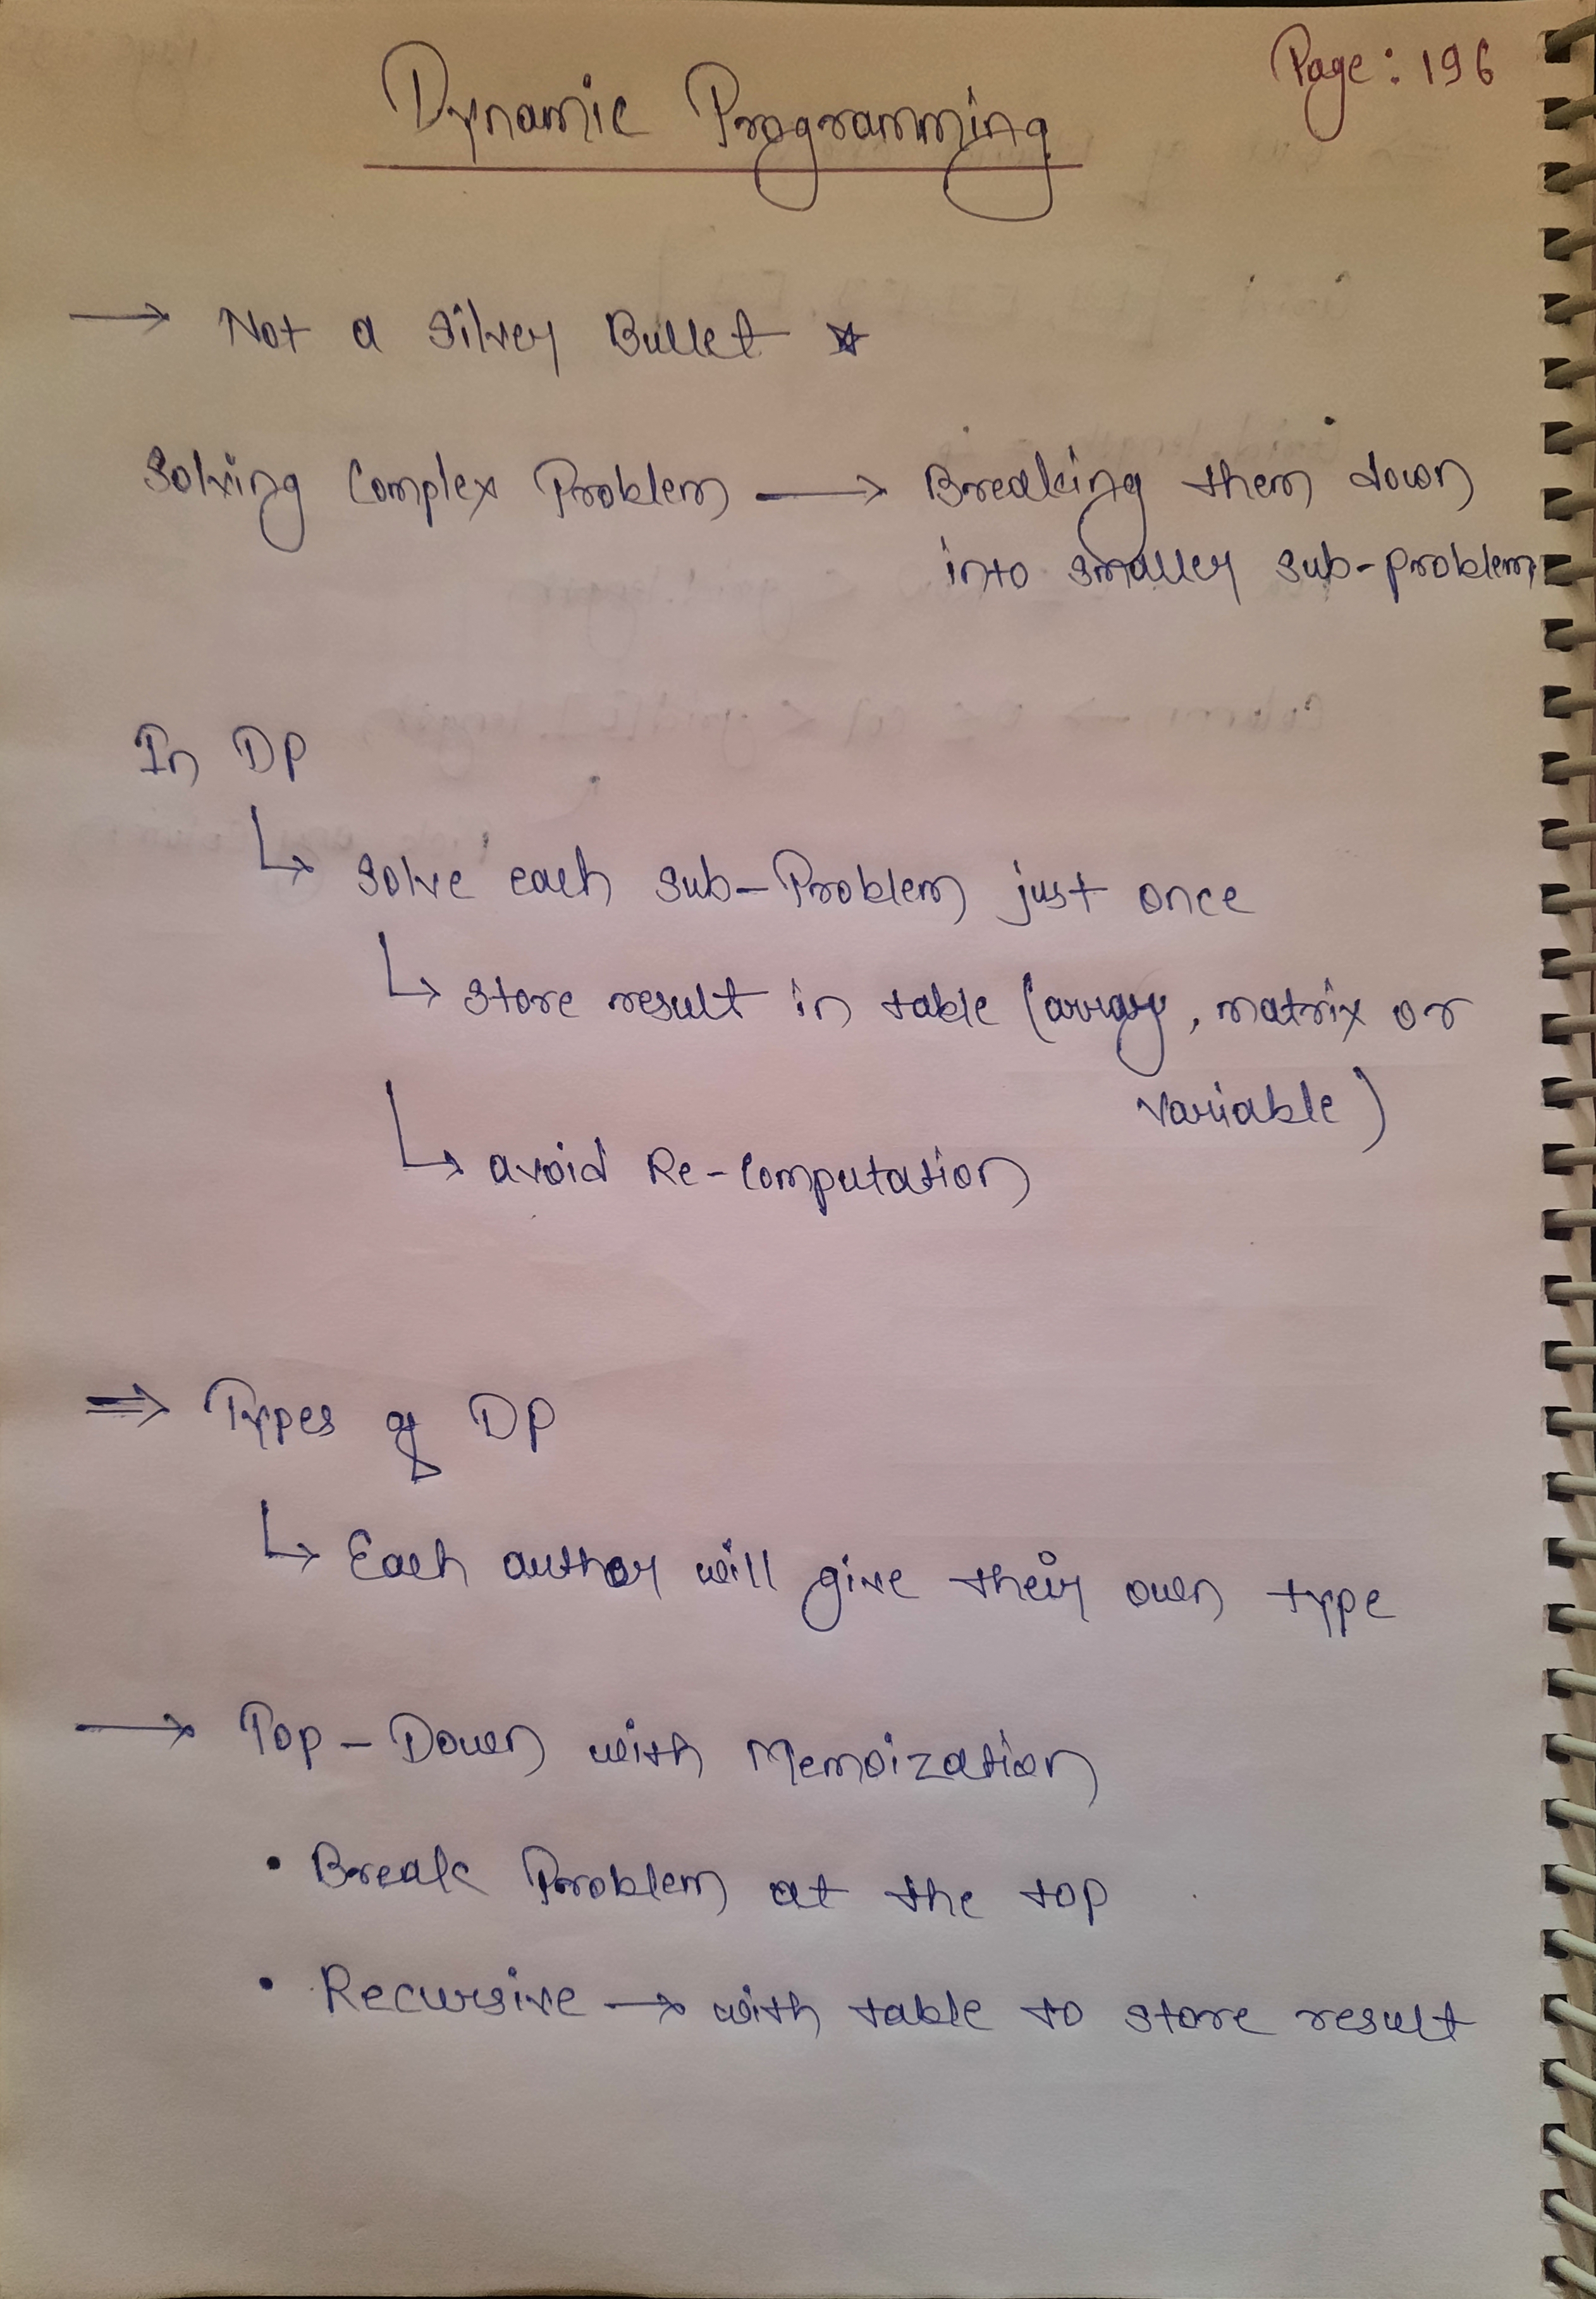 Page: 196
Dynamic Programming
→ Not a silver Bullet ☆
Solving Complex Problem → Breaking them down
into smaller sub-problem
In DP
↳ Solve each sub-Problem just once
↳ store result in table (array, matrix or
variable)
↳ avoid Re-Computation
⇒ Types of DP
↳ Each author will give their own type
→ Top-Down with Memoization
• Break Problem at the top
• Recursive → with table to store result